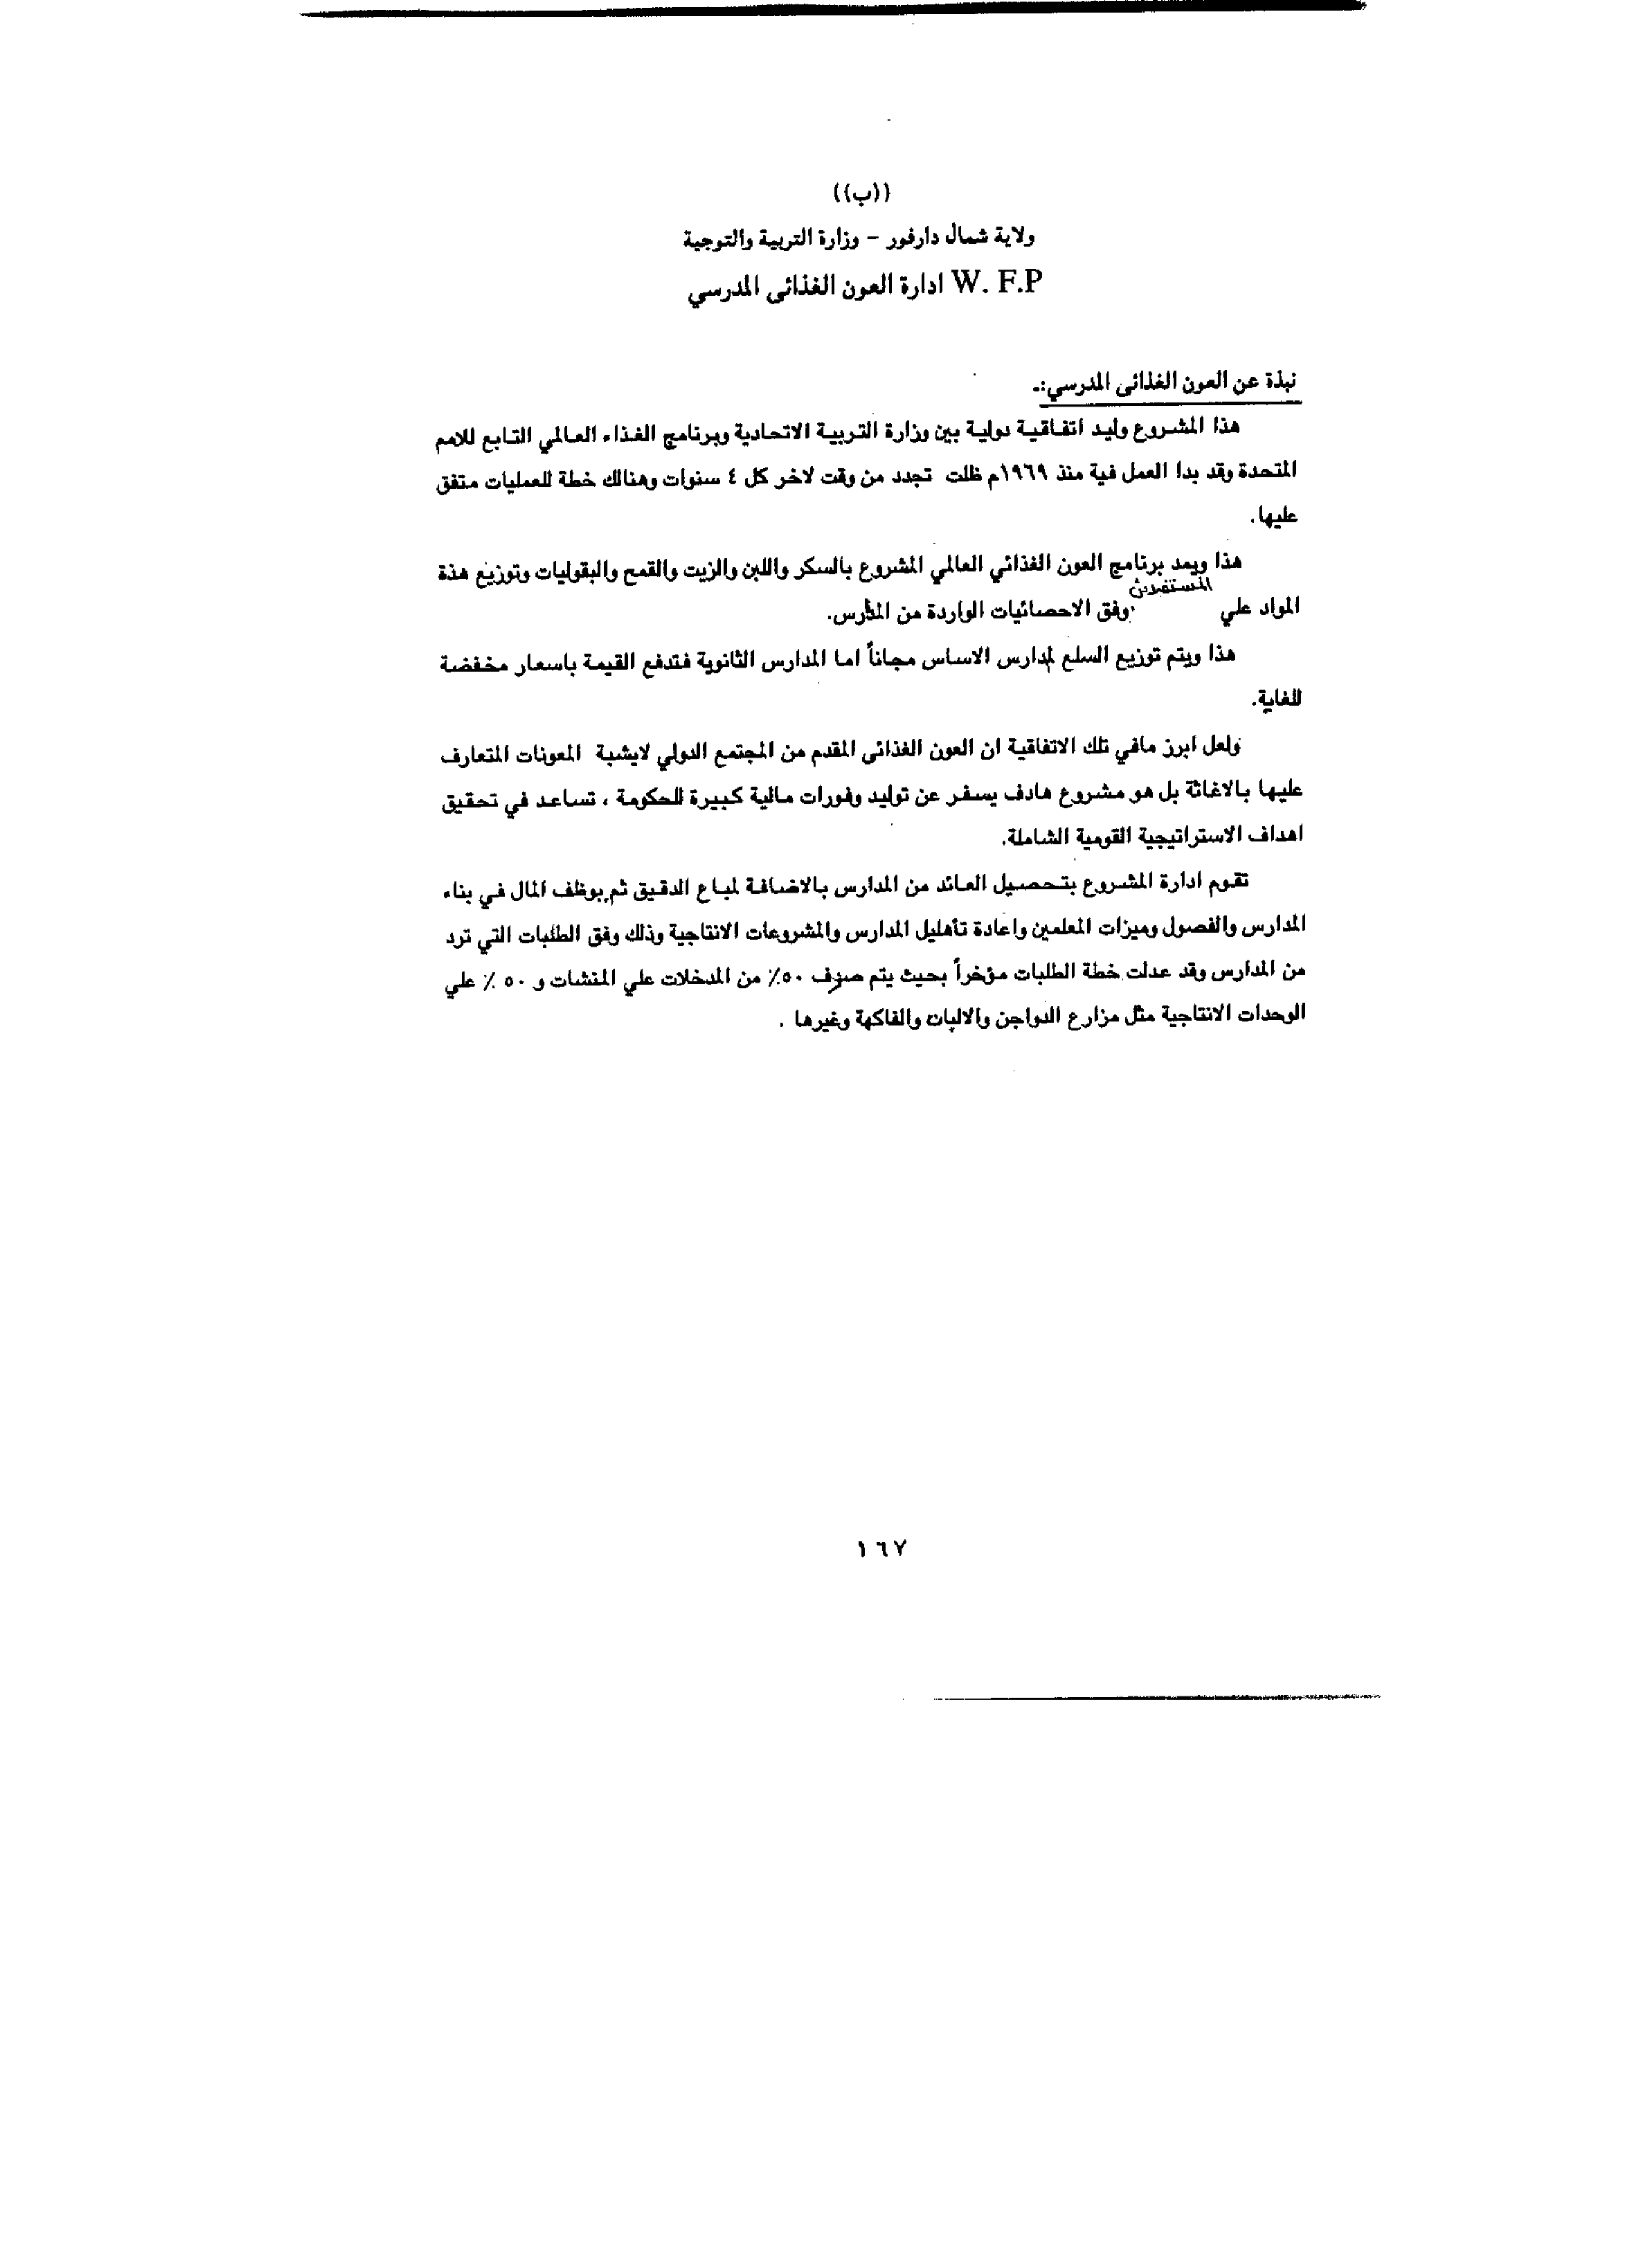 ((ب))
ولاية شمال دارفور – وزارة التربية والتوجية
W. F.P ادارة العون الغذائى المدرسي
نبذة عن العون الغذائى المدرسي:-
هذا المشروع وليد اتفاقية دولية بين وزارة التربية الاتحادية وبرنامج الغذاء العالمي التابع للامم
المتحدة وقد بدا العمل فية منذ ١٩٦٩م ظلت تجدد من وقت لاخر كل ٤ سنوات وهنالك خطة للعمليات متفق
عليها.
هذا ويمد برنامج العون الغذائي العالمي المشروع بالسكر واللبن والزيت والقمح والبقوليات وتوزيع هذة
المواد علي المستفيدين وفق الاحصائيات الواردة من المدارس.
هذا ويتم توزيع السلع لمدارس الاساس مجاناً اما المدارس الثانوية فتدفع القيمة باسعار مخفضة
للغاية.
ولعل ابرز مافي تلك الاتفاقية ان العون الغذائى المقدم من المجتمع الدولي لايشبة المعونات المتعارف
عليها بالاغاثة بل هو مشروع هادف يسفر عن توليد وفورات مالية كبيرة للحكومة ، تساعد في تحقيق
اهداف الاستراتيجية القومية الشاملة.
تقوم ادارة المشروع بتحصيل العائد من المدارس بالاضافة لمباع الدقيق ثم يوظف المال في بناء
المدارس والفصول وميزات المعلمين واعادة تأهليل المدارس والمشروعات الانتاجية وذلك وفق الطلبات التي ترد
من المدارس وقد عدلت خطة الطلبات مؤخراً بحيث يتم صرف ٥٠٪ من المدخلات علي المنشات و ٥٠ ٪ علي
الوحدات الانتاجية مثل مزارع الدواجن والالبان والفاكهة وغيرها .
١٦٧